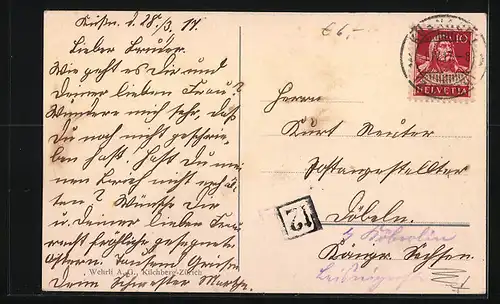 Küsn. d. 28./3. 17.
Lieber Bruder.
Wie geht es Dir und
Deiner lieben Frau?
Wundere mich sehr, daß
Du noch nicht geschrie-
ben hast, hast Du mei-
nen Brief nicht erhal-
ten? Wünsche Dir
u. Deiner lieben Frau
recht fröhliche gesegnete
Ostern. Tausend Grüsse
Deine Schwester Martha.
Wehrli A. G., Kilchberg-Zürich
€6,-
10
HELVETIA
Herrn
Kurt Reuter
Postangestellter
Döbeln.
Königr. Sachsen.
12